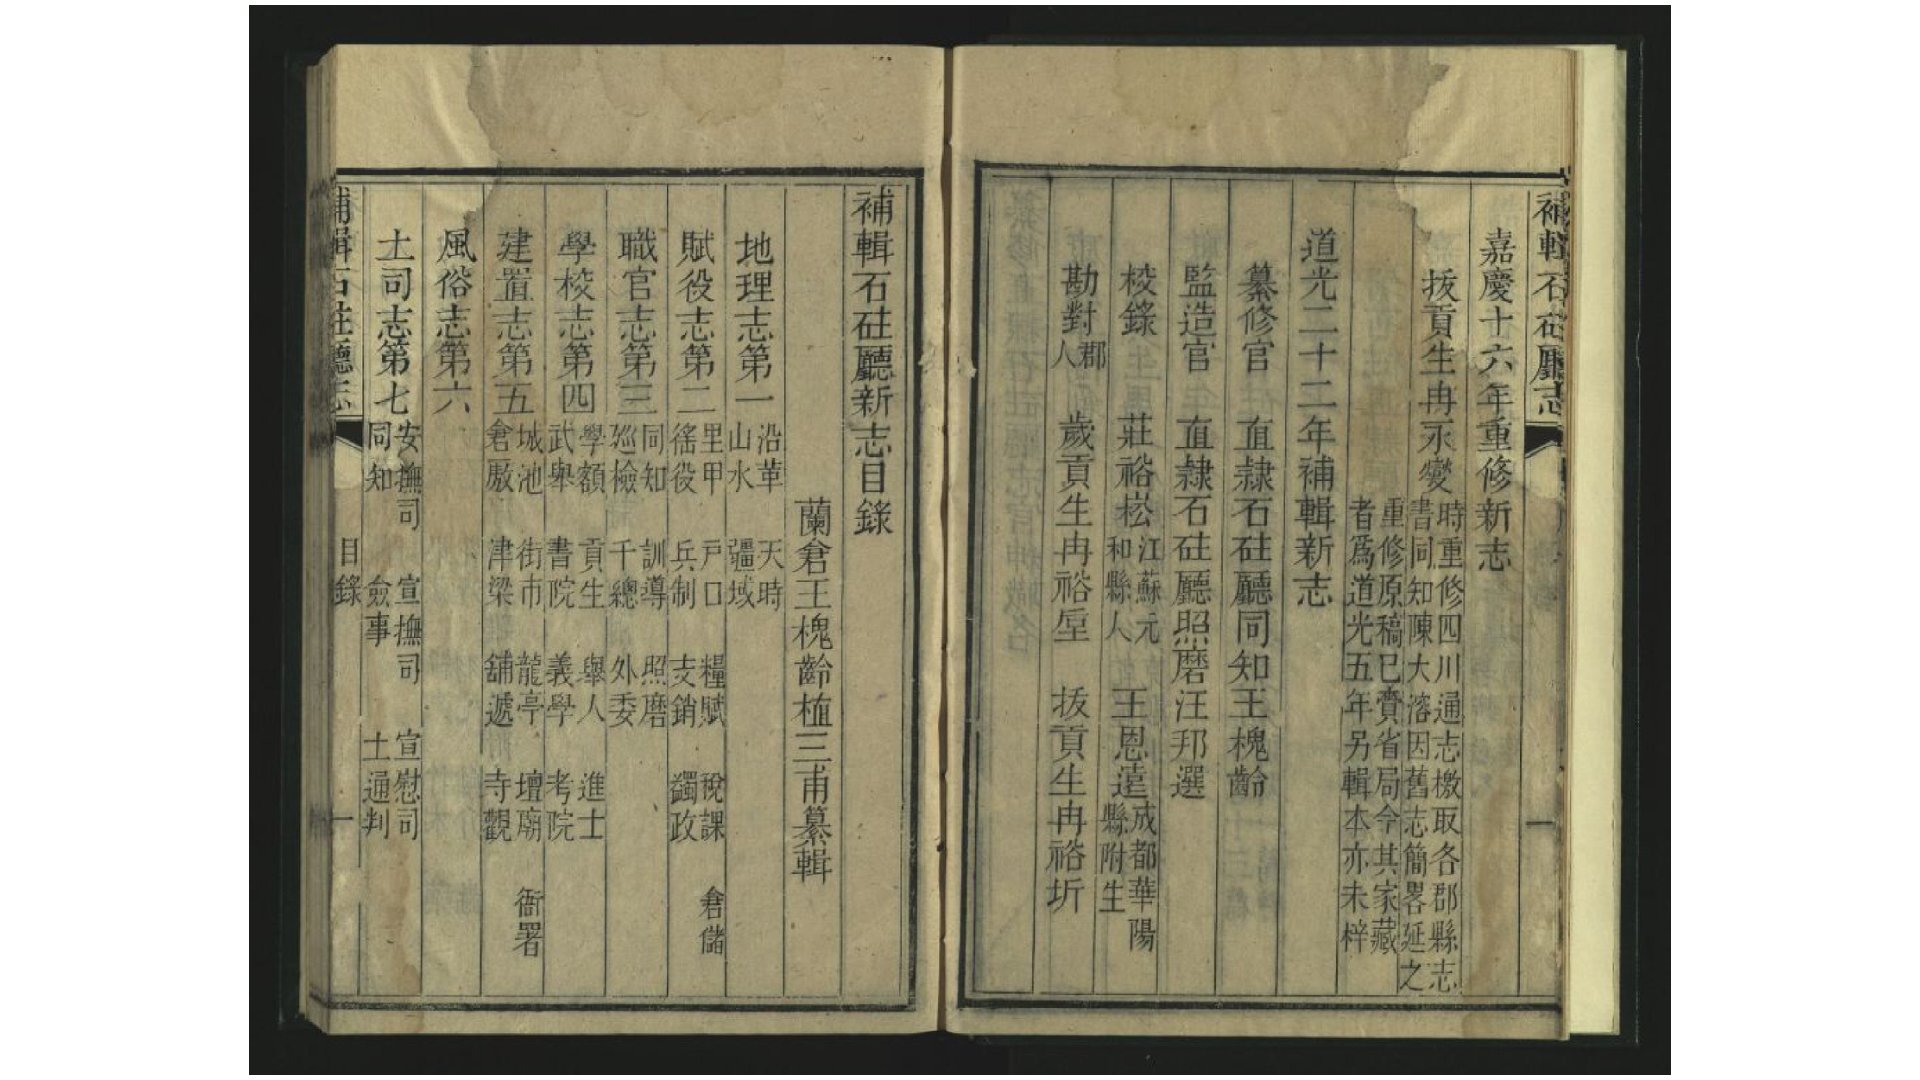 補輯石砫廳志
一
嘉慶十六年重修新志
拔貢生冉永燮
時重修四川通志檄取各郡縣志
書同知陳大溶因舊志簡畧延之
重修原稿已賫省局今其家藏
者爲道光五年另輯本亦未梓
道光二十二年補輯新志
纂修官 直隷石砫廳同知王槐齡
監造官 直隷石砫廳照磨汪邦選
校錄 莊裕崧
江蘇元
和縣人
王恩遠
成都華陽
縣附生
勘對
郡
人
歲貢生冉裕垕 拔貢生冉裕圻
補輯石砫廳新志目錄
蘭倉王槐齡植三甫纂輯
地理志第一
沿革 天時
山水 疆域
賦役志第二
里甲 戸口 糧賦 稅課 倉儲
徭役 兵制 支銷 蠲政
職官志第三
同知 訓導 照磨
廵檢 千總 外委
學校志第四
學額 貢生 舉人 進士
武舉 書院 義學 考院
建置志第五
城池 街市 龍亭 壇廟 衙署
倉厫 津梁 鋪遞 寺觀
風俗志第六
土司志第七
安撫司 宣撫司 宣慰司
同知 僉事 土通判
補輯石砫廳志
目錄
一